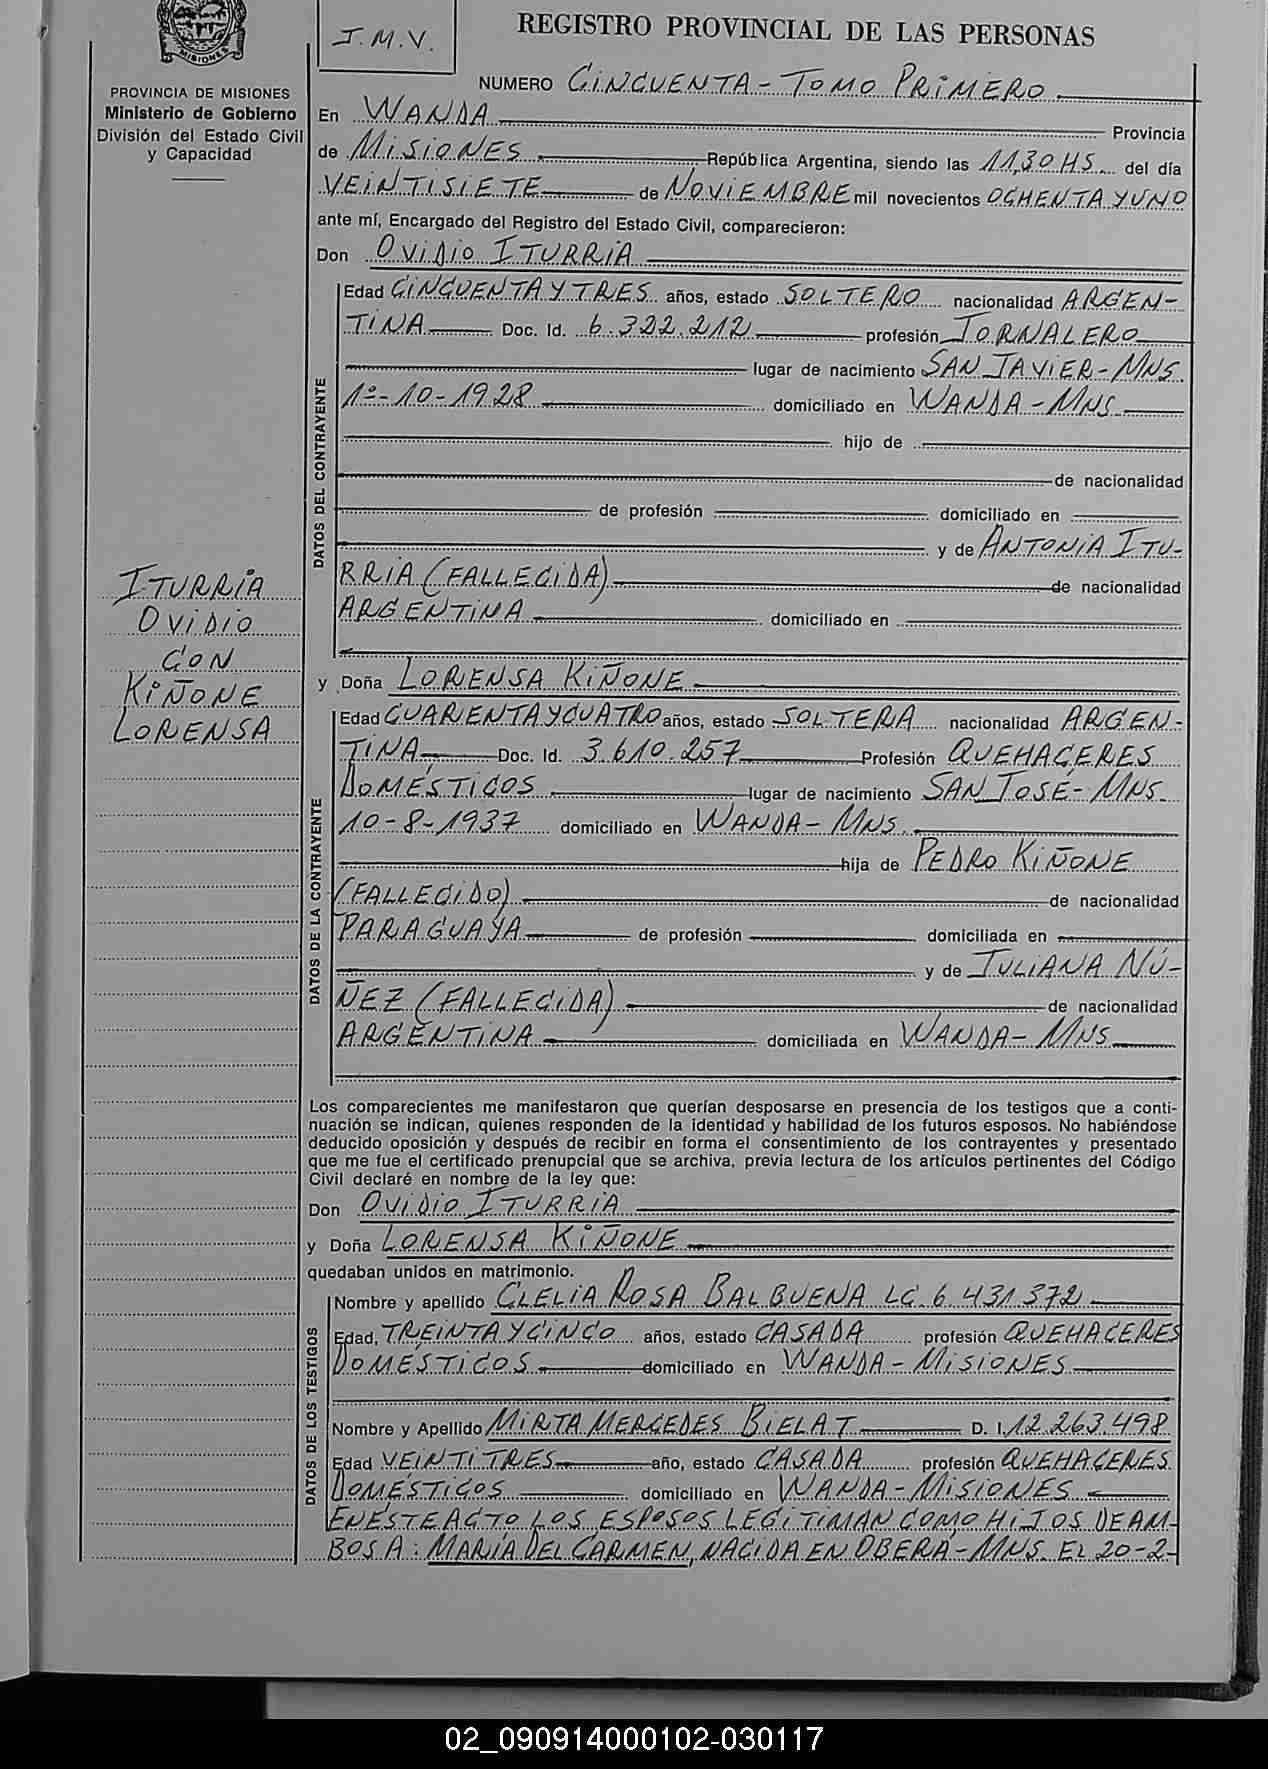 MISIONES
J.M.V.
REGISTRO PROVINCIAL DE LAS PERSONAS
PROVINCIA DE MISIONES
Ministerio de Gobierno
División del Estado Civil
y Capacidad
NUMERO CINCUENTA - TOMO PRIMERO
En WANDA Provincia
de MISIONES República Argentina, siendo las 11,30 HS. del día
VEINTISIETE de NOVIEMBRE mil novecientos OCHENTA Y UNO
ante mí, Encargado del Registro del Estado Civil, comparecieron:
Don OVIDIO ITURRIA
DATOS DEL CONTRAYENTE
Edad CINCUENTA Y TRES años, estado SOLTERO nacionalidad ARGEN-
TINA Doc. Id. 6.322.212 profesión JORNALERO
lugar de nacimiento SAN JAVIER - MNS.
1º-10-1928 domiciliado en WANDA - MNS
hijo de
de nacionalidad
de profesión domiciliado en
y de ANTONIA ITU-
RRIA (FALLECIDA) de nacionalidad
ARGENTINA domiciliado en
ITURRIA
OVIDIO
CON
KIÑONE
LORENSA
y Doña LORENSA KIÑONE
DATOS DE LA CONTRAYENTE
Edad CUARENTA Y CUATRO años, estado SOLTERA nacionalidad ARGEN-
TINA Doc. Id. 3.610.257 Profesión QUEHACERES
DOMÉSTICOS lugar de nacimiento SAN JOSÉ - MNS.
10-8-1937 domiciliado en WANDA - MNS.
hija de PEDRO KIÑONE
(FALLECIDO) de nacionalidad
PARAGUAYA de profesión domiciliada en
y de JULIANA NÚ-
ÑEZ (FALLECIDA) de nacionalidad
ARGENTINA domiciliada en WANDA - MNS
Los comparecientes me manifestaron que querían desposarse en presencia de los testigos que a conti-
nuación se indican, quienes responden de la identidad y habilidad de los futuros esposos. No habiéndose
deducido oposición y después de recibir en forma el consentimiento de los contrayentes y presentado
que me fue el certificado prenupcial que se archiva, previa lectura de los artículos pertinentes del Código
Civil declaré en nombre de la ley que:
Don OVIDIO ITURRIA
y Doña LORENSA KIÑONE
quedaban unidos en matrimonio.
DATOS DE LOS TESTIGOS
Nombre y apellido CLELIA ROSA BALBUENA LC. 6.431.372
Edad, TREINTA Y CINCO años, estado CASADA profesión QUEHACERES
DOMÉSTICOS domiciliado en WANDA - MISIONES
Nombre y Apellido MIRTA MERCEDES BIELAT D. I. 12.263.498
Edad VEINTITRES año, estado CASADA profesión QUEHACERES
DOMÉSTICOS domiciliado en WANDA - MISIONES
EN ESTE ACTO LOS ESPOSOS LEGITIMAN COMO HIJOS DE AM-
BOS A: MARÍA DEL CARMEN, NACIDA EN OBERÁ - MNS. EL 20-2-
02_090914000102-030117